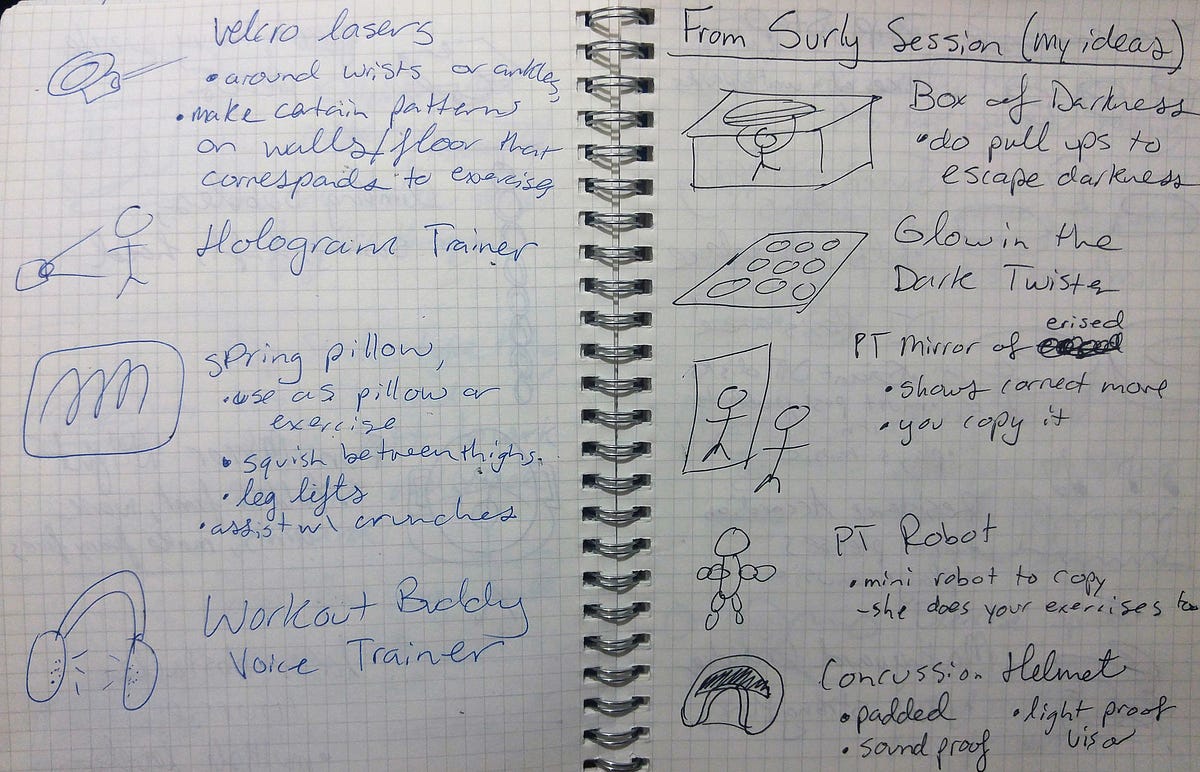 Velcro lasers
• around wrists or ankles
• make certain patterns
on walls/floor that
corresponds to exercise
Hologram Trainer
spring pillow,
• use as pillow or
exercise
• squish between thighs.
• leg lifts
• assist w\ crunches
Workout Buddy
Voice Trainer
From Surly Session (my ideas)
Box of Darkness
• do pull ups to
escape darkness
Glow in the
Dark Twister
erised
PT Mirror of
• shows correct move
• you copy it
PT Robot
• mini robot to copy
- she does your exercises too
Concussion Helmet
• padded • light proof
• sound proof visor